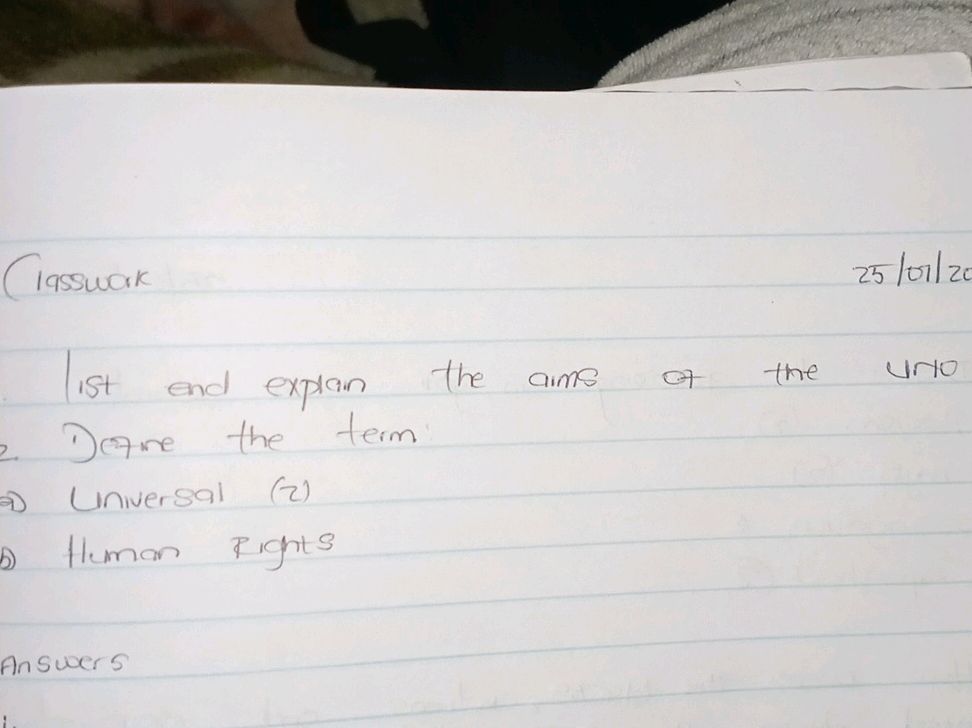 Classwork 25/01/20
. list end explain the aims of the UNO
2. Define the term
a) Universal (2)
b) Human Rights
Answers
1.